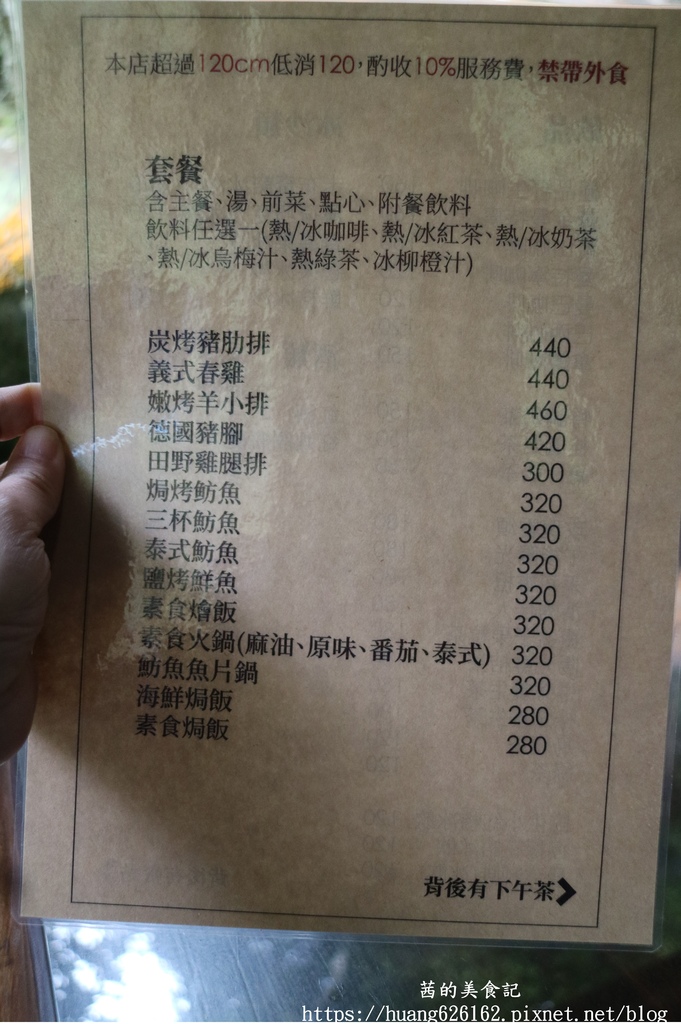 本店超過120cm低消120,酌收10%服務費,禁帶外食
套餐
含主餐、湯、前菜、點心、附餐飲料
飲料任選一(熱/冰咖啡、熱/冰紅茶、熱/冰奶茶
、熱/冰烏梅汁、熱綠茶、冰柳橙汁)
炭烤豬肋排 440
義式春雞 440
嫩烤羊小排 460
德國豬腳 420
田野雞腿排 300
焗烤魴魚 320
三杯魴魚 320
泰式魴魚 320
鹽烤鮮魚 320
素食燴飯 320
素食火鍋(麻油、原味、番茄、泰式) 320
魴魚魚片鍋 320
海鮮焗飯 280
素食焗飯 280
背後有下午茶
茜的美食記
https://huang626162.pixnet.net/blog